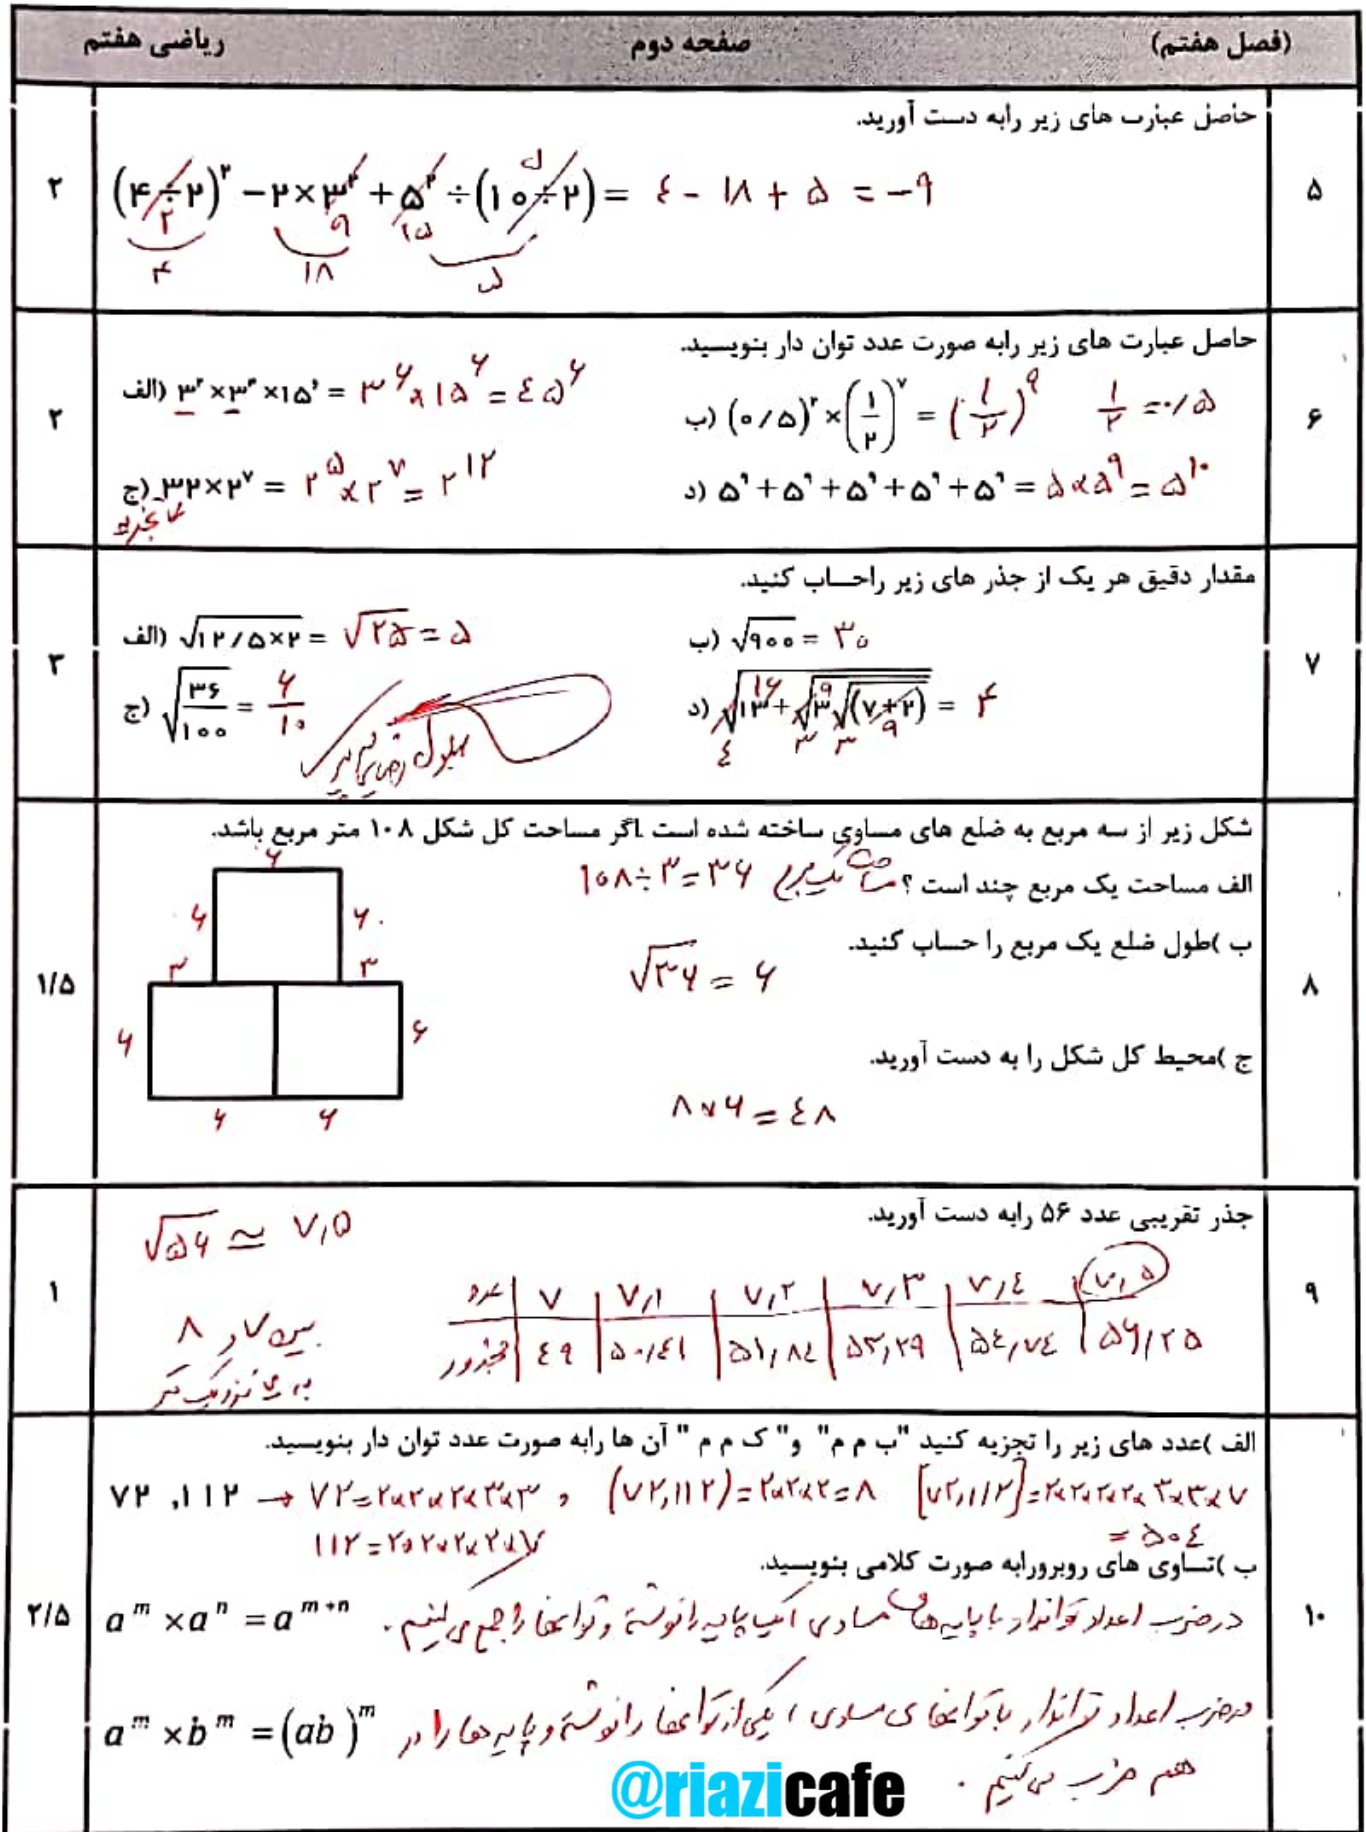 (فصل هفتم) صفحه دوم ریاضی هفتم
۵
حاصل عبارت های زیر رابه دست آورید.
(۴÷۲)^۲ − ۲×۳^۲ + ۵^۲ ÷ (۱۰÷۲) = ٤ − ۱۸ + ۵ = −۹
۲ ۹ ۲۵ ۵
۴ ۱۸ ۵
۲
۶
حاصل عبارت های زیر رابه صورت عدد توان دار بنویسید.
الف) ۳^۲ × ۳^۴ × ۱۵^۶ = ۳^۶ × ۱۵^۶ = ٤۵^۶
ب) (۰/۵)^۲ × (۱/۲)^۷ = (۱/۲)^۹ ۱/۲ = ۰/۵
ج) ۳۲×۲^۷ = ۲^۵ × ۲^۷ = ۲^۱۲
تجزیه
د) ۵^۹ + ۵^۹ + ۵^۹ + ۵^۹ + ۵^۹ = ۵×۵^۹ = ۵^۱۰
۲
۷
مقدار دقیق هر یک از جذر های زیر راحساب کنید.
الف) √۱۲/۵×۲ = √۲۵ = ۵
ب) √۹۰۰ = ۳۰
ج) √۳۶/۱۰۰ = ۶/۱۰
د) √۱۳+√۳√(۷+۲) = ۴
۱۶ ۹ ۹
٤ ۳ ۳
۳
۸
شکل زیر از سه مربع به ضلع های مساوی ساخته شده است .اگر مساحت کل شکل ۱۰۸ متر مربع باشد.
الف مساحت یک مربع چند است ؟ مساحت یک مربع ۱۰۸÷۳=۳۶
ب )طول ضلع یک مربع را حساب کنید.
√۳۶ = ۶
ج )محیط کل شکل را به دست آورید.
۸×۶=٤۸
۶
۶ ۶
۳ ۳
۶ ۶
۶ ۶
۱/۵
۹
جذر تقریبی عدد ۵۶ رابه دست آورید.
√۵۶ ≃ ۷,۵
بین ۷ و ۸
به ۷ نزدیک تر
عدد ۷ ۷,۱ ۷,۲ ۷,۳ ۷,٤ ۷,۵
مجذور ٤۹ ۵۰,٤۱ ۵۱,۸٤ ۵۳,۲۹ ۵٤,۷٤ ۵۶,۲۵
۱
۱۰
الف )عدد های زیر را تجزیه کنید "ب م م" و" ک م م " آن ها رابه صورت عدد توان دار بنویسید.
۷۲ ,۱۱۲ → ۷۲=۲×۲×۲×۳×۳ , (۷۲,۱۱۲)=۲×۲×۲=۸ [۷۲,۱۱۲]=۲×۲×۲×۲×۳×۳×۷
۱۱۲=۲×۲×۲×۲×۷ = ۵۰٤
ب )تساوی های روبرورابه صورت کلامی بنویسید.
a^m × a^n = a^(m+n) در ضرب اعداد تواندار با پایه های مساوی یکی از پایه را نوشته و توانها را جمع می کنیم .
a^m × b^m = (ab)^m در ضرب اعداد تواندار با توانهای مساوی ، یکی از توانها را نوشته و پایه ها را در
هم ضرب می کنیم .
۲/۵
@riazicafe